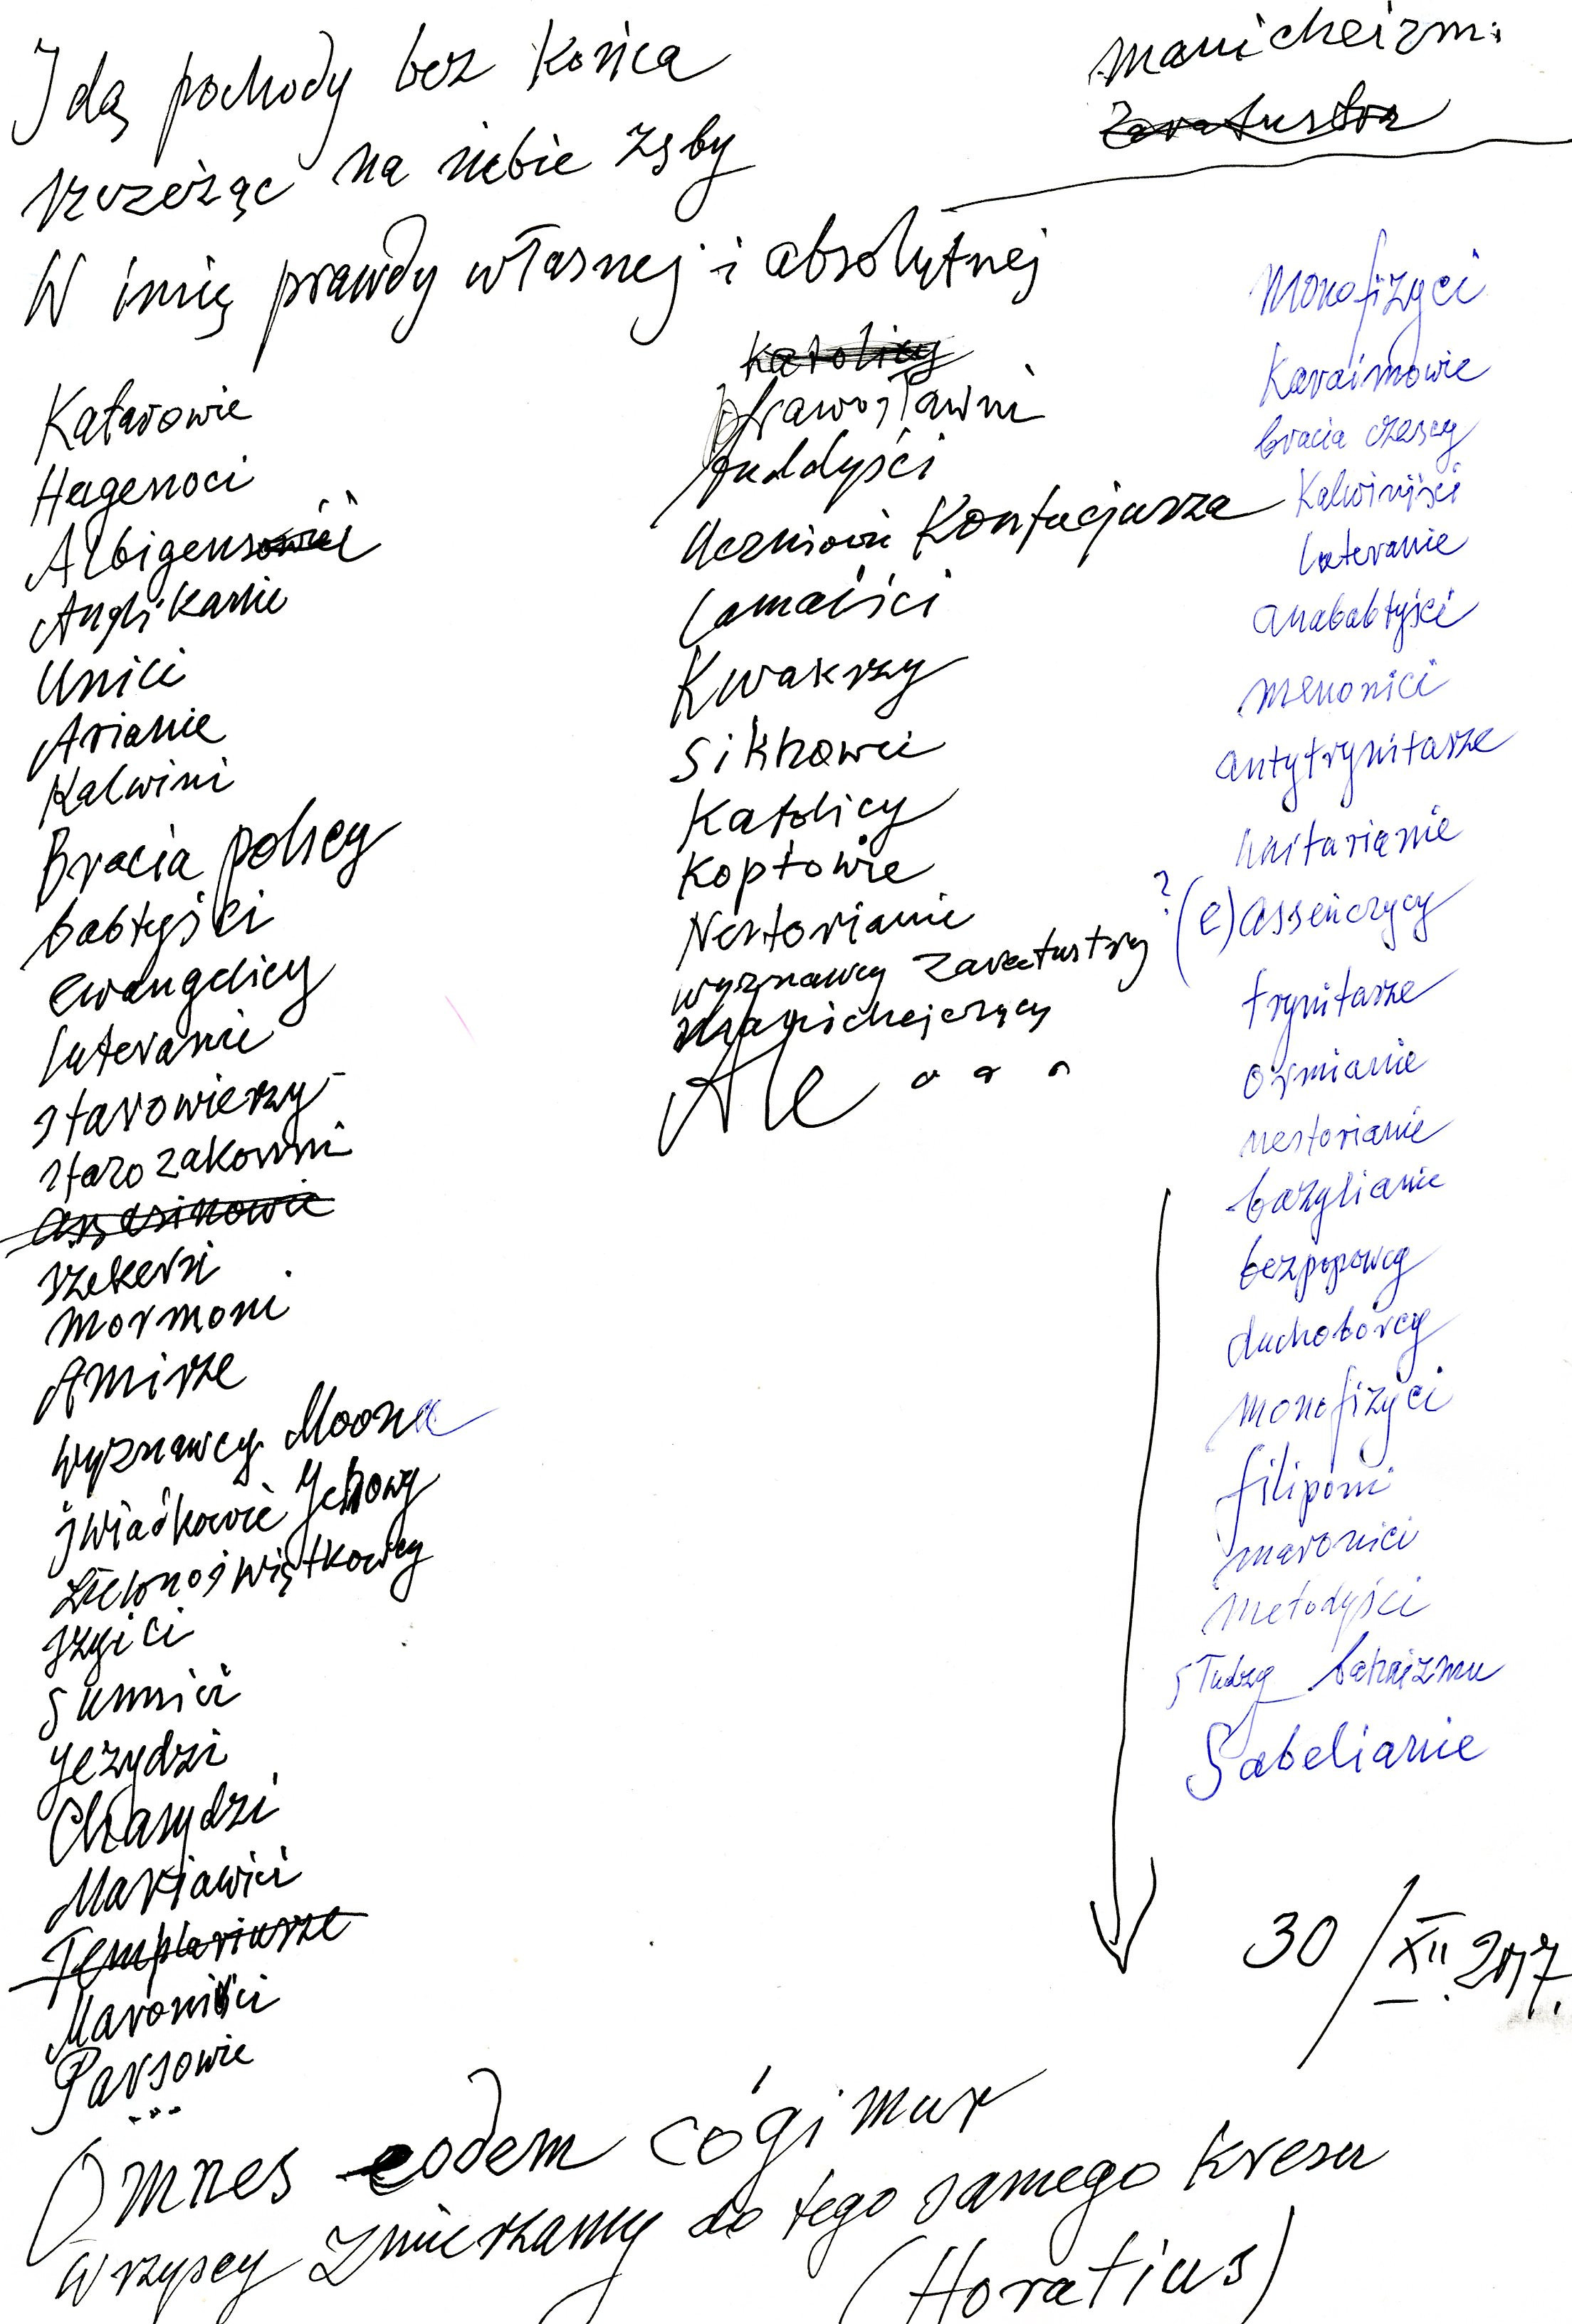 Idą pochody bez końca
szczerząc na siebie zęby
W imię prawdy własnej i absolutnej
Katarowie
Hugenoci
Albigensi
Anglikanie
Unici
Arianie
Kalwini
Bracia polscy
babtyści
ewangelicy
luteranie
starowierzy
starozakonni
assasinowie
szekersi
mormoni
Amisze
wyznawcy Moona
świadkowie Jehowy
zielonoświątkowcy
szyici
sunnici
jezydzi
Chasydzi
Mariawici
Templariusze
Maronici
Parsowie
...
katolicy
prawosławni
buddyści
uczniowie Konfucjusza
lamaiści
Kwakrzy
Sikhowie
Katolicy
Koptowie
Nestorianie
wyznawcy Zaratustry
manichejczycy
Ale . . .
manicheizm:
Zaratustra
monofizyci
Karaimowie
bracia czescy
Kalwiniści
luteranie
anababtyści
menonici
antytrynitarze
unitarianie
? (e) asseńczycy
trynitarze
ormianie
nestorianie
bazylianie
bezpopowcy
duchoborcy
monofizyci
filiponi
maronici
metodyści
słudzy bahaizmu
Sabelianie
30/XII.2017.
Omnes eodem cógimur
Wszyscy zmierzamy do tego samego kresu
(Horatius)